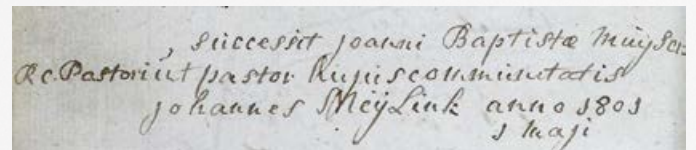 , successit joanni Baptistæ Muÿser
Rc. Pastori ut pastor hujus communitatis
johannes Meÿlink anno 1801
1 maji